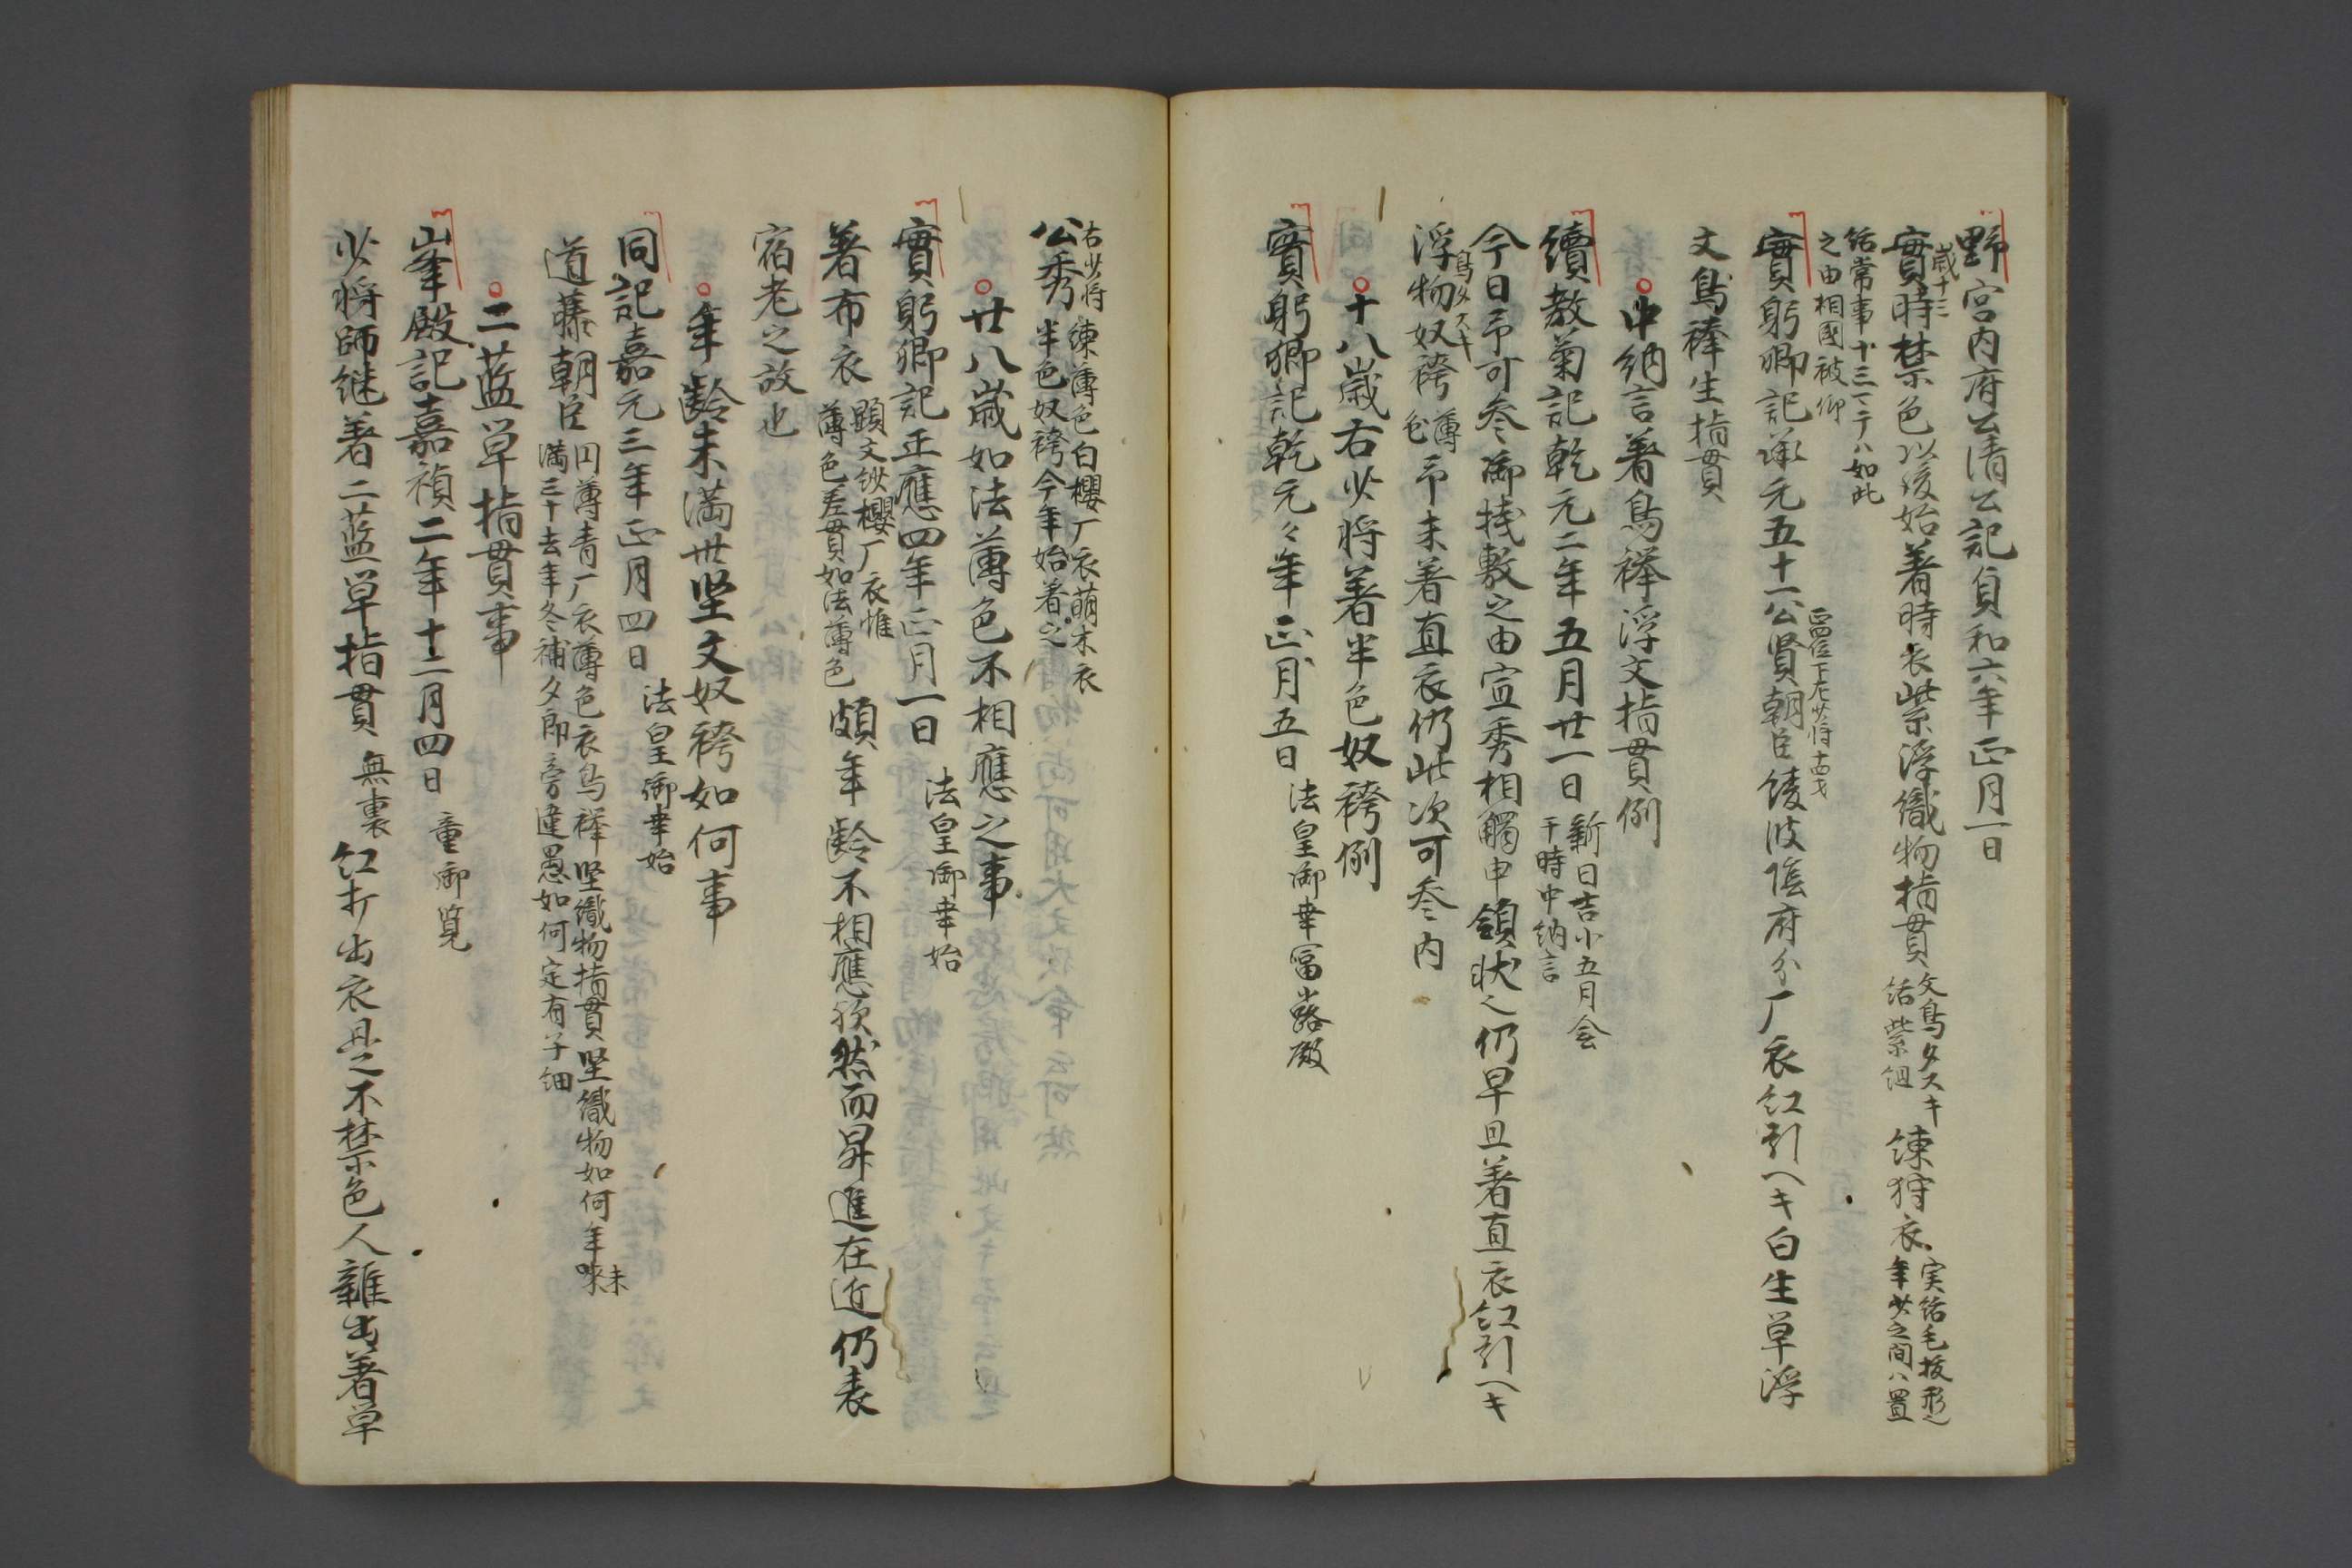 野宮内府公清公記貞和六年正月一日
歳十三
實時禁色以後始著時衣紫浮織物指貫
文鳥タスキ
括紫組
練狩衣
実括毛抜形也
年少之間ハ置
括常事十三マテハ如此
之由相國被仰
實躬卿記承元五十一公賢朝臣
正四位下左少将
府分厂衣紅引ヘキ白生単浮
文鳥襷生指貫
中納言著鳥襷浮文指貫例
續教菊記乾元二年五月廿一日
新日吉小五月会
于時中納言
今日予可参御桟敷之由宣秀相觸申領状之仍早旦著直衣紅引ヘキ
鳥タスキ
浮物奴袴
薄色
予未著直衣仍此次可参内
十八歳右少将著半色奴袴例
實躬卿記乾元々年正月五日
法皇御幸冨小路殿
右少将
公秀
練薄色白櫻厂衣萌木衣
半色奴袴今年始著之
廿八歳如法薄色不相應之事
實躬卿記正應四年正月一日
法皇御幸始
著布衣
顕文紗櫻厂衣惟
薄色差貫如法薄色
頗年齢不相應歟然而昇進在近仍表
宿老之故也
年齢未満卅堅文奴袴如何事
同記嘉元三年正月四日
法皇御幸始
道藤朝臣
円薄青厂衣薄色衣鳥襷堅織物指貫堅織物如何年未
満三十去年冬補夕郎旁違愚如何定有子細
二藍単指貫事
峯殿記嘉禎二年十二月四日
童御覧
少将師継著二藍単指貫
無裏
紅打出衣具之不禁色人雖出著単